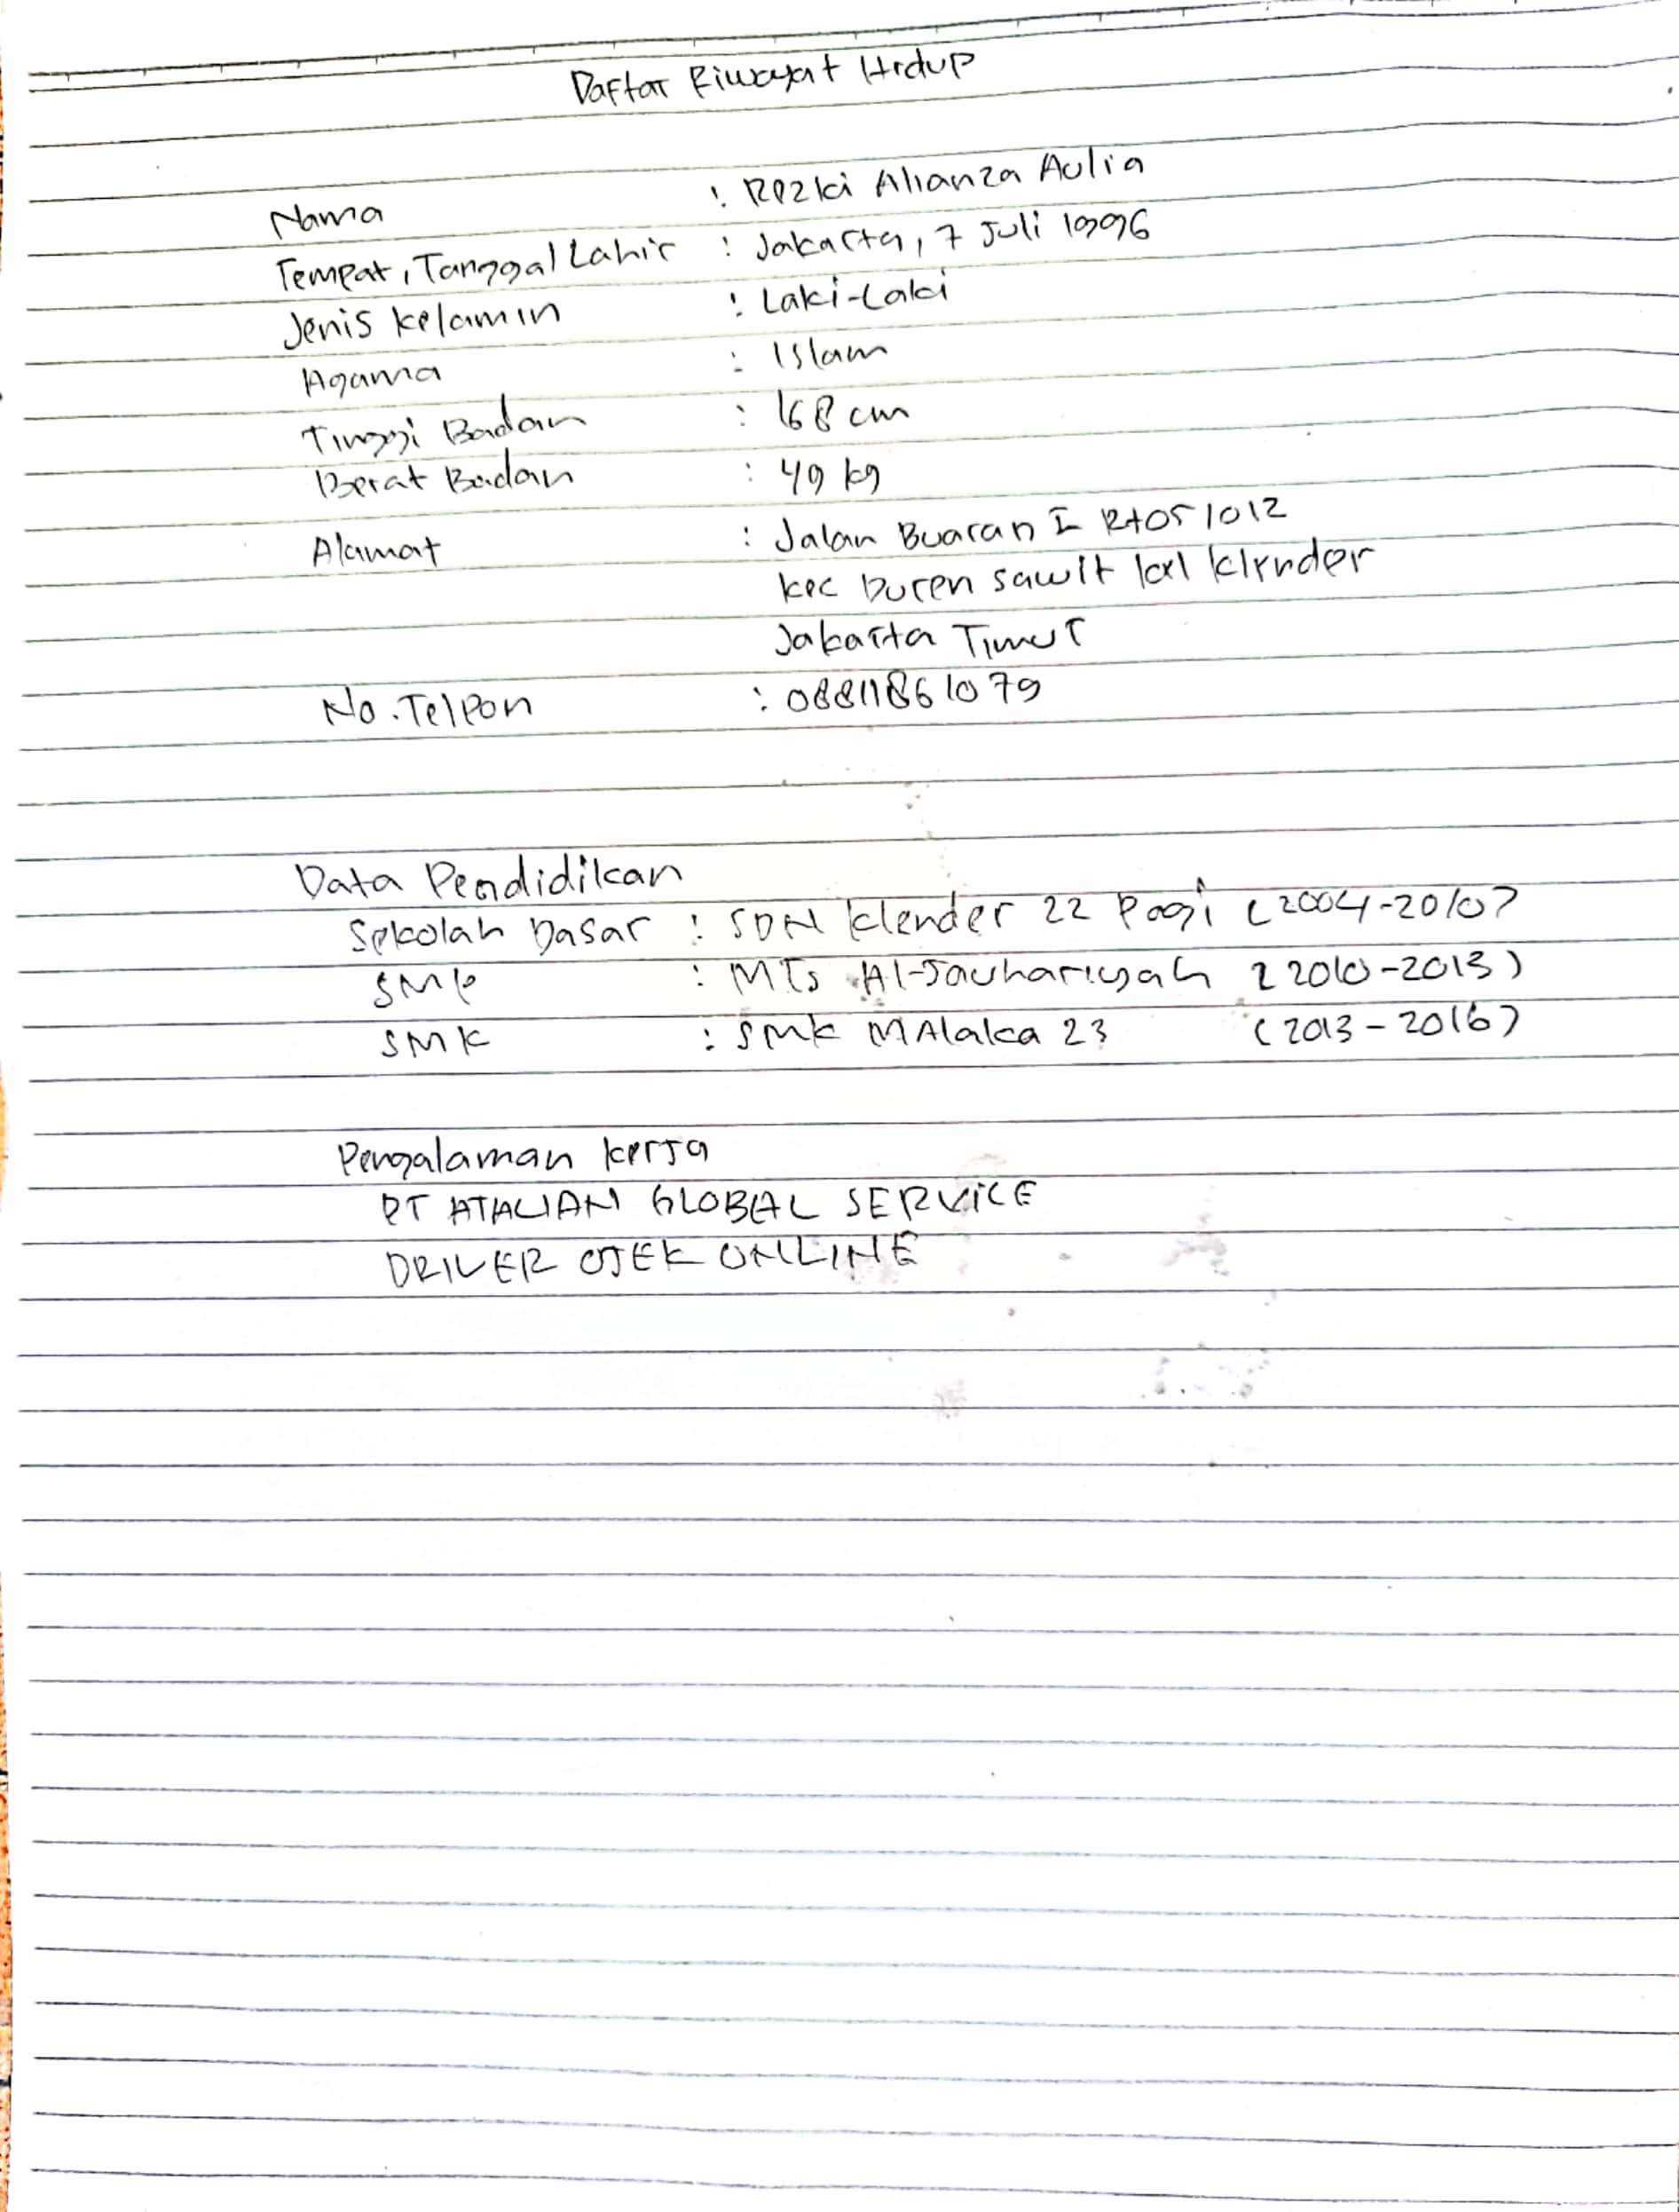 Daftar Riwayat Hidup
Nama : Rezki Alianza Aulia
Tempat, Tanggal Lahir : Jakarta, 7 Juli 1996
Jenis Kelamin : Laki-Laki
Agama : Islam
Tinggi Badan : 168 cm
Berat Badan : 49 kg
Alamat : Jalan Buaran I Rt05/012
Kec Duren Sawit kel Klender
Jakarta Timur
No. Telpon : 08811861079
Data Pendidikan
Sekolah Dasar : SDN Klender 22 Pagi (2004-2010)
SMP : MTs Al-Jauhariyah (2010-2013)
SMK : SMK MAlaka 23 (2013-2016)
Pengalaman Kerja
PT ATALIAN GLOBAL SERVICE
DRIVER OJEK ONLINE